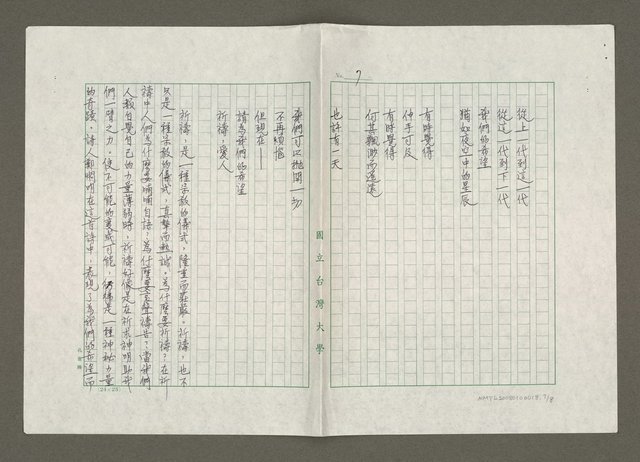 No. 7
從上一代到這一代
從這一代到下一代
我們的希望
猶如夜空中的星辰
有時覺得
伸手可及
有時覺得
何其飄渺而遙遠
也許有一天
國立台灣大學
我們可以拋開一切
不再煩惱
但現在——
請為我們的希望
祈禱,愛人
祈禱,是一種宗教的儀式,隆重而莊嚴。祈禱,也不
只是一種宗教的儀式,真摯而熱誠。為什麼要祈禱?在祈
禱中人們為什麼要喃喃自語?為什麼要禱告?當我們
人類自覺自己的力量薄弱時,祈禱好像是在祈求神明助我
們一臂之力,使不可能的變成可能,彷彿是一種神秘力量
的奇蹟。詩人很明明在這首詩中,表現了為我們的希望而
(24×25)
NMTL20080100418. 7/8